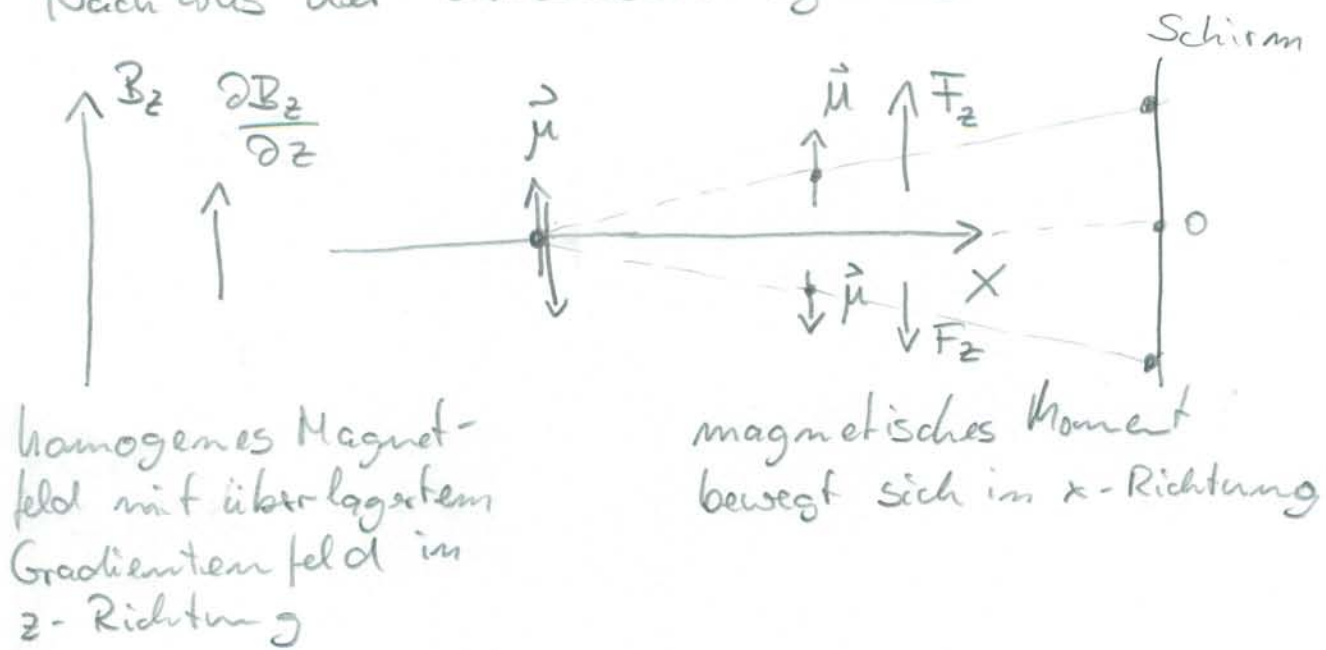 Nach
Schirm
B_z ∂B_z/∂z
μ⃗
μ⃗ F_z
0
X
μ⃗ F_z
homogenes Magnet-
feld mit überlagertem
Gradientenfeld in
z-Richtung
magnetisches Moment
bewegt sich in x-Richtung